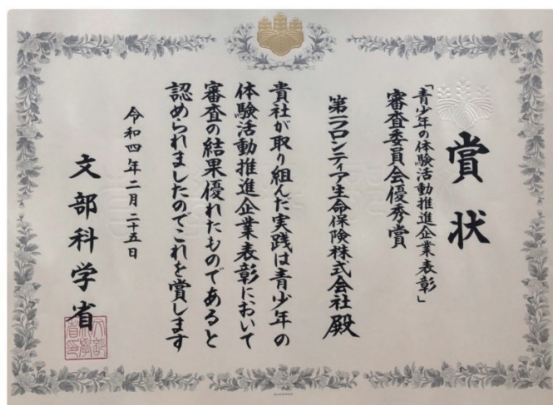 賞状
「青少年の体験活動推進企業表彰」
審査委員会優秀賞
第一フロンティア生命保険株式会社 殿
貴社が取り組んだ実践は青少年の
体験活動推進企業表彰において
審査の結果優れたものであると
認められましたのでこれを賞します
令和四年二月二十五日
文部科学省